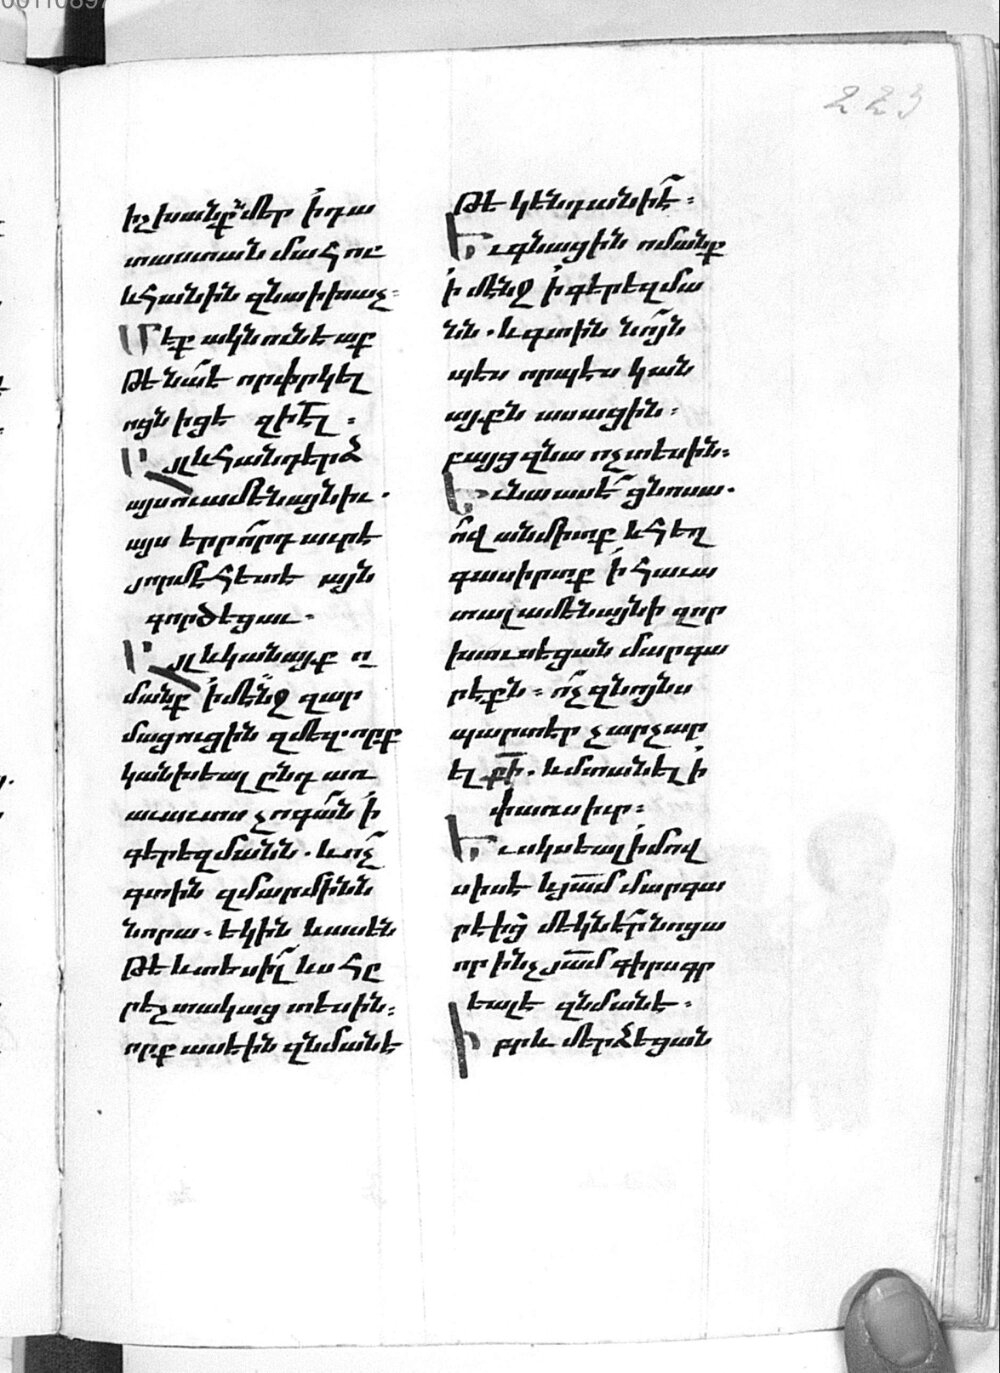 00110897
223
իշխանքն մեր ի դա
տաստան մահու
և հանին զնա ի խաչ։
Մեք ակն ունեաք
թե նա է որ փրկել
ոցն իցե զիէլ։
Այլ և հանդերձ
այսու ամենայնիւ.
այս երրորդ աւր է
յորմէ հետե այն
գործեցաւ.
Այլ և կանայք ո
մանք ի մէնջ զար
մացուցին զմեզ. որք
կանխեալ ընդ առ
աւաւտս չոգան ի
գերեզմանն. և ոչ
գտին զմարմինն
նորա. եկին և ասէն
թե և տեսիլ ևս հը
րեշտակաց տեսին։
որք ասեին զնմանէ
թէ կենդանի է։
Եւ գնացին ոմանք
ի մէնջ ի գերեզմա
նն. և գտին նոյն
պես որպէս կան
այքն ասացին։
բայց զնա ոչ տեսին։
Եւ նա ասէ ցնոսա.
ով անմիտք և հեղ
գասիրտք ի հաւա
տալ ամենայնի զոր
խաւսեցան մարգա
րէքն։ ոչ զնոյնս
պարտ էր չարչար
ել քի. և մտանել ի
փառս իւր։
Եւ սկսեալ ի մով
սիսէ և յամ մարգա
րէից մեկնէր նոցա
որ ինչ յամ գիրս գր
եալ է զնմանէ։
Իբրև մերձեցան